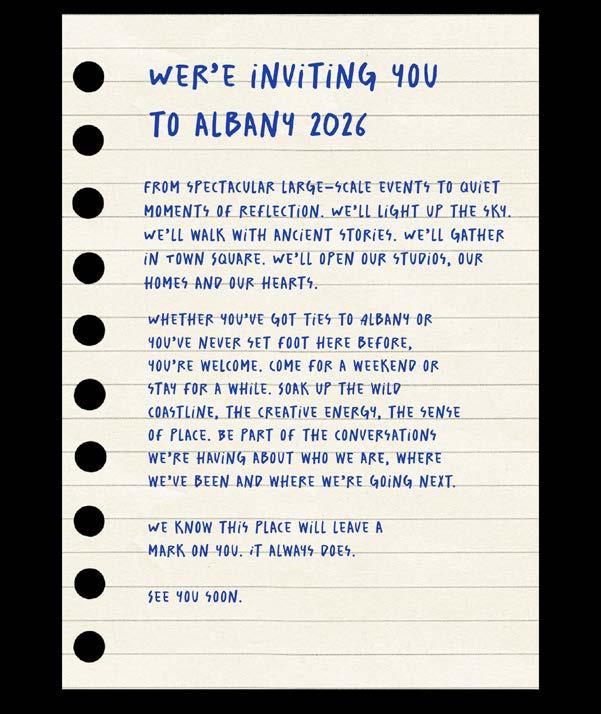 WER'E iNViTiNG YOU
TO ALBANY 2026
FROM SPECTACULAR LARGE-SCALE EVENTS TO QUiET
MOMENTS OF REFLECTiON. WE'LL LiGHT UP THE SKY.
WE'LL WALK WiTH ANCiENT STORiES. WE'LL GATHER
iN TOWN SQUARE. WE'LL OPEN OUR STUDiOS, OUR
HOMES AND OUR HEARTS.
WHETHER YOU'VE GOT TiES TO ALBANY OR
YOU'VE NEVER SET FOOT HERE BEFORE,
YOU'RE WELCOME. COME FOR A WEEKEND OR
STAY FOR A WHiLE. SOAK UP THE WiLD
COASTLiNE, THE CREATiVE ENERGY, THE SENSE
OF PLACE. BE PART OF THE CONVERSATiONS
WE'RE HAViNG ABOUT WHO WE ARE, WHERE
WE'VE BEEN AND WHERE WE'RE GOiNG NEXT.
WE KNOW THiS PLACE WiLL LEAVE A
MARK ON YOU. iT ALWAYS DOES.
SEE YOU SOON.